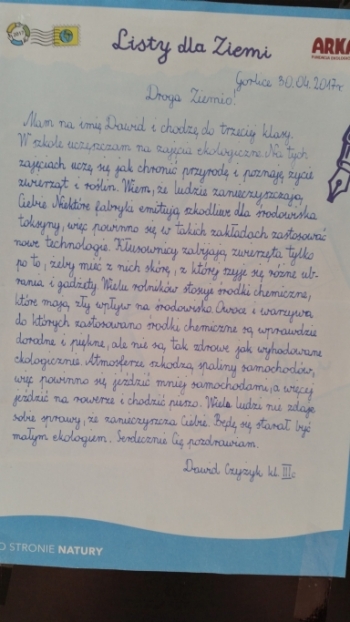 2017
Listy dla Ziemi
ARKA
FUNDACJA EKOLOGICZNA
Gorlice 30.04.2017r.
Droga Ziemio!
Mam na imię Dawid i chodzę do trzeciej klasy.
W szkole uczęszczam na zajęcia ekologiczne. Na tych
zajęciach uczę się jak chronić przyrodę i poznaję życie
zwierząt i roślin. Wiem, że ludzie zanieczyszczają
Ciebie. Niektóre fabryki emitują szkodliwe dla środowiska
toksyny, więc powinno się w takich zakładach zastosować
nowe technologie. Kłusownicy zabijają zwierzęta tylko
po to, żeby mieć z nich skórę, z której szyje się różne ub-
rania i gadżety. Wielu rolników stosuje środki chemiczne,
które mają zły wpływ na środowisko. Owoce i warzywa
do których zastosowano środki chemiczne są wprawdzie
dorodne i piękne, ale nie są tak zdrowe jak wyhodowane
ekologicznie. Atmosferze szkodzą spaliny samochodów,
więc powinno się jeździć mniej samochodami, a więcej
jeździć na rowerze i chodzić pieszo. Wiele ludzi nie zdaje
sobie sprawy, że zanieczyszcza Ciebie. Będę się starał być
małym ekologiem. Serdecznie Cię pozdrawiam.
Dawid Czyżyk kl. III c
O STRONIE NATURY